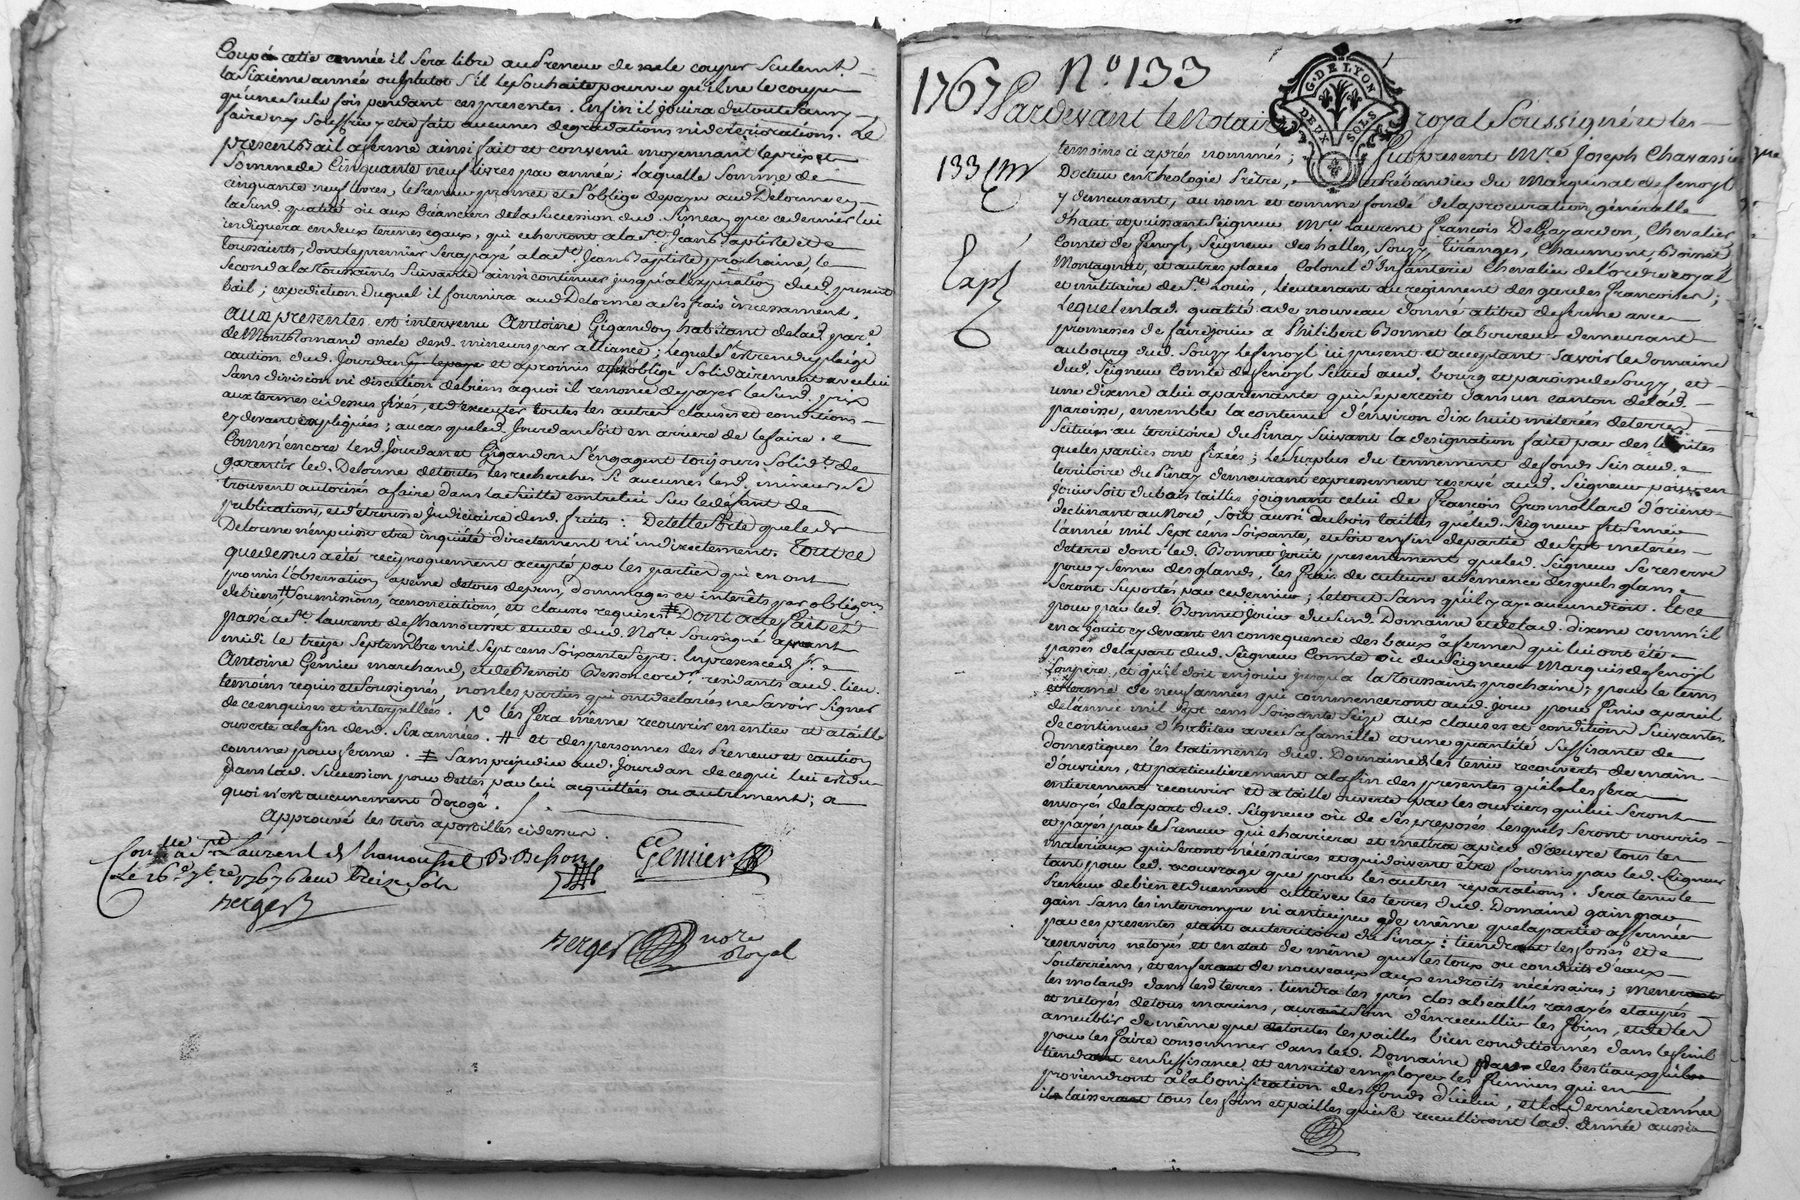 Coupé cette année il sera libre au Preneur de ne le couper seulemt.
la sixieme année ou plutot s'il le souhaite pourvu qu'il ne le coupe
qu'une seule fois pendant ces presentes. Enfin il jouira du tout sans y
faire ny souffrir y etre fait aucunes degradations ni deteriorations. Le
present bail a ferme ainsi fait et convenû moyennant le prix et
somme de Cinquante neuf livres par année; laquelle somme de
cinquante neuf livres, le Preneur promet et s'oblige de payer aud. Delorme en
lad. qualité où aux créanciers de la succession dud. Simean que ce dernier lui
indiquera en deux termes egaux, qui echerront a la st. Jean Baptiste et a
toussaints, dont le premier sera payé a la st. Jean Baptiste prochaine, le
second a la toussaints suivante ainsi continuer jusqu'a l'expiration dud. present
bail; expedition duquel il fournira aud. Delorme a ses frais incessament.
aux presentes est intervenu Antoine Gigandon habitant de lad. par.e
de Montromand oncle desd. mineurs par alliance; lequel s'est rendu pleige
caution dud. Jourdan et a promis et s'oblige solidairement avec lui
sans division ni discution de biens a quoi il renonce de payer le susd. prix
aux termes ci dessus fixés, et d'executer toutes les autres clauses et conditions
cy devant expliquées; au cas que led. Jourdan soit en arriere de le faire. e
Comm'encore lesd. Jourdan et Gigandon s'engagent toujours solid.t de
garentir led. Delorme de toutes les recherches si aucunes lesd. mineurs se
trouvent autorisés a faire dans la suitte contre lui sur le défaut de
publications, et d'etrousse judiciaire desd. fruits: De telle sorte que led.
Delorme n'en puisse etre inquiété directement ni indirectement. Tout ce
que dessus a été reciproquement accepté par les parties qui en ont
promis l'observation a peine de tous depens, dommages et interêts par obligaon
de biens, # soumissions, renonciations, et clauses requises # Dont acte Fait et
passé a st. Laurent de Chamousset etude dud. Nore. soussigné avant
midi le treize septembre mil sept cens soixante sept. En presence de sr.
Antoine Gemier marchand, et de Benoit Besson cord.r residants aud. lieu.
temoins requis et soussignés, non les parties qui ont declarées ne savoir signer
de ce enquises et interpellées. les fera même recouvrir en entier et a taille
ouverte a la fin desd. six années. # et des personnes des Preneur et caution
comme pour ferme. # sans prejudice aud. Jourdan de ce qui lui est du
dans lad. succession pour dettes par lui acquittées ou autrement; a
quoi n'est aucunement derogé.
Approuvé les trois apostilles ci dessus.
Con.lle a st. Laurent d Chamousset B Besson Gemier
Le 26e 7bre 1767 reçu treize sols
Berger
Berger nore
Royal
1767 N.o 133
G. DE LYON
DEUX SOLS
Pardevant le Notaire royal Soussigné et les
133 
temoins ci aprés nommés; Fut present Mre. Joseph Chavassieu
Docteur en theologie Prêtre, et Prébandier du Marquisat de fenoyl
y demeurant, au nom et comme fondé de la procuration généralle
d'haut et puissant Seigneur Mre. Laurent François De Gayardon, Chevalier
Comte de Fenoyl, Seigneur des halles, Souzy, Tiranges, Chaumont, Boisset
Expé
Montagnat, et autres places Colonel d'Infanterie Chevalier de l'ordre royal
et militaire de st. Louis, Lieutenant au regiment des gardes françoises;
Lequel en lad. qualité a de nouveau donné a titre de ferme avec
promesses de faire jouir a Philibert Bonnet laboureur demeurant
au bourg dud. Souzy le fenoyl ici present et acceptant savoir le domaine
dud. Seigneur Comte de fenoyl scitué aud. bourg et paroisse de Souzy, et
une dixme a lui apartenante qui se perçoit dans un canton de lad.
paroisse, ensemble la contenue d'environ dix huit métérées de terres
scituées au territoire du Pinay suivant la designation faite par des limites
que les parties ont fixées; Le surplus du tennement de fonds scis aud.
territoire du Pinay demeurant expressement reservé aud. Seigneur pour en
jouir soit du bois taillis joignant celui de François Grosmollard d'orient
declinant au Nord soit aussi du bois taillis que led. Seigneur fit semer
l'année mil sept cens soixante, et soit enfin de partie de sept meterées
de terre dont led. Bonnet jouit presentement que led. Seigneur se reserve
pour y semer des glands, les frais de culture et semence desquels glans
seront suportés par ce dernier; le tout sans qu'il y aye aucun droit. Et ce
pour par led. Bonnet jouir du susd. Domaine et de lad. dixme comm'il
en a jouit cy devant en consequence des baux a ferme qui lui ont été
passés de la part dud. Seigneur Comte où du Seigneur Marquis de fenoyl
son pere, et qu'il doit en jouir jusqu'a la toussaints prochaine; pour le tems
et terme de neuf années qui commenceront aud. jour pour finir a pareil
de l'année mil sept cens soixante seize aux clauses et conditions suivantes
de continuer d'habiter avec sa famille et une quantité suffisante de
domestiques les batiments dud. Domaine & les tenir recouverts de main
d'ouvriers, et particulierement a la fin des presentes qu'il les fera
entierement recouvrir et a taille ouverte par les ouvriers qui lui seront
envoyés de la part dud. Seigneur où de ses preposés, lesquels seront nourris
et payés par le Preneur qui charriera et mettra a pied d'œuvre tous les
materiaux qui seront nécéssaires et qui doivent être fournis par led. Seigneur
tant pour led. recouvrage que pour les autres réparations. Sera tenu le
Preneur de bien et duement cultiver les terres dud. Domaine gain par
gain sans les interrompre ni anticiper de même que la partie affermée
par ces presentes etant au territoire du Pinay: tiendra les fossés et
reservoirs netoyés et en etat de même que les toux ou conduits d'eaux
souterreins, et en fera de nouveaux aux endroits nécéssaires; menera
les molards dans lesd. terres. tiendra les prés clos abeallés rasayés etaupés
et netoyés de tous mareins, aura soin d'en recueillir les foins, et de les
ameublir de même que de toutes les pailles bien conditionnés dans le fenil
pour les faire consommer dans led. Domaine par des bestiaux qu'il
tiendra en suffisance et ensuite employer les fumiers qui en
proviendront a la bonification des fonds d'icelui, et la derniere année
il laissera tous les foins et pailles qui se recueilliront lad. année aussi